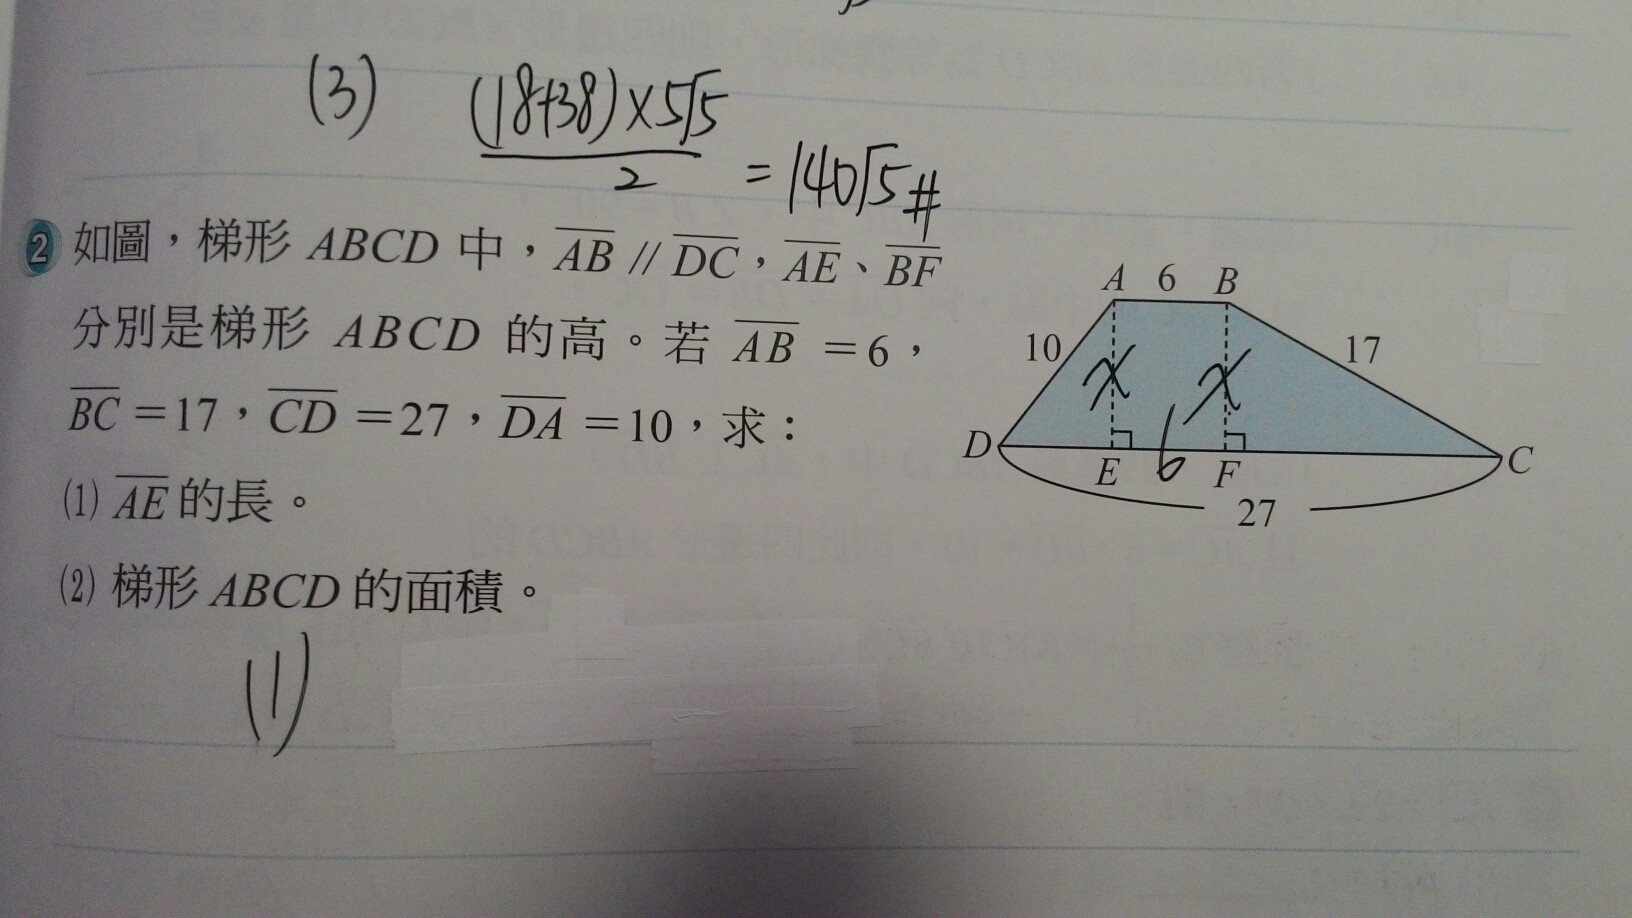 (3) (18+38)×5√5
2
=140√5#
2 如圖，梯形 ABCD 中，AB // DC，AE、BF
分別是梯形 ABCD 的高。若 AB =6，
BC =17，CD =27，DA =10，求：
(1) AE 的長。
(2) 梯形 ABCD 的面積。
A 6 B
10 x x 17
D E 6 F C
27
(1)